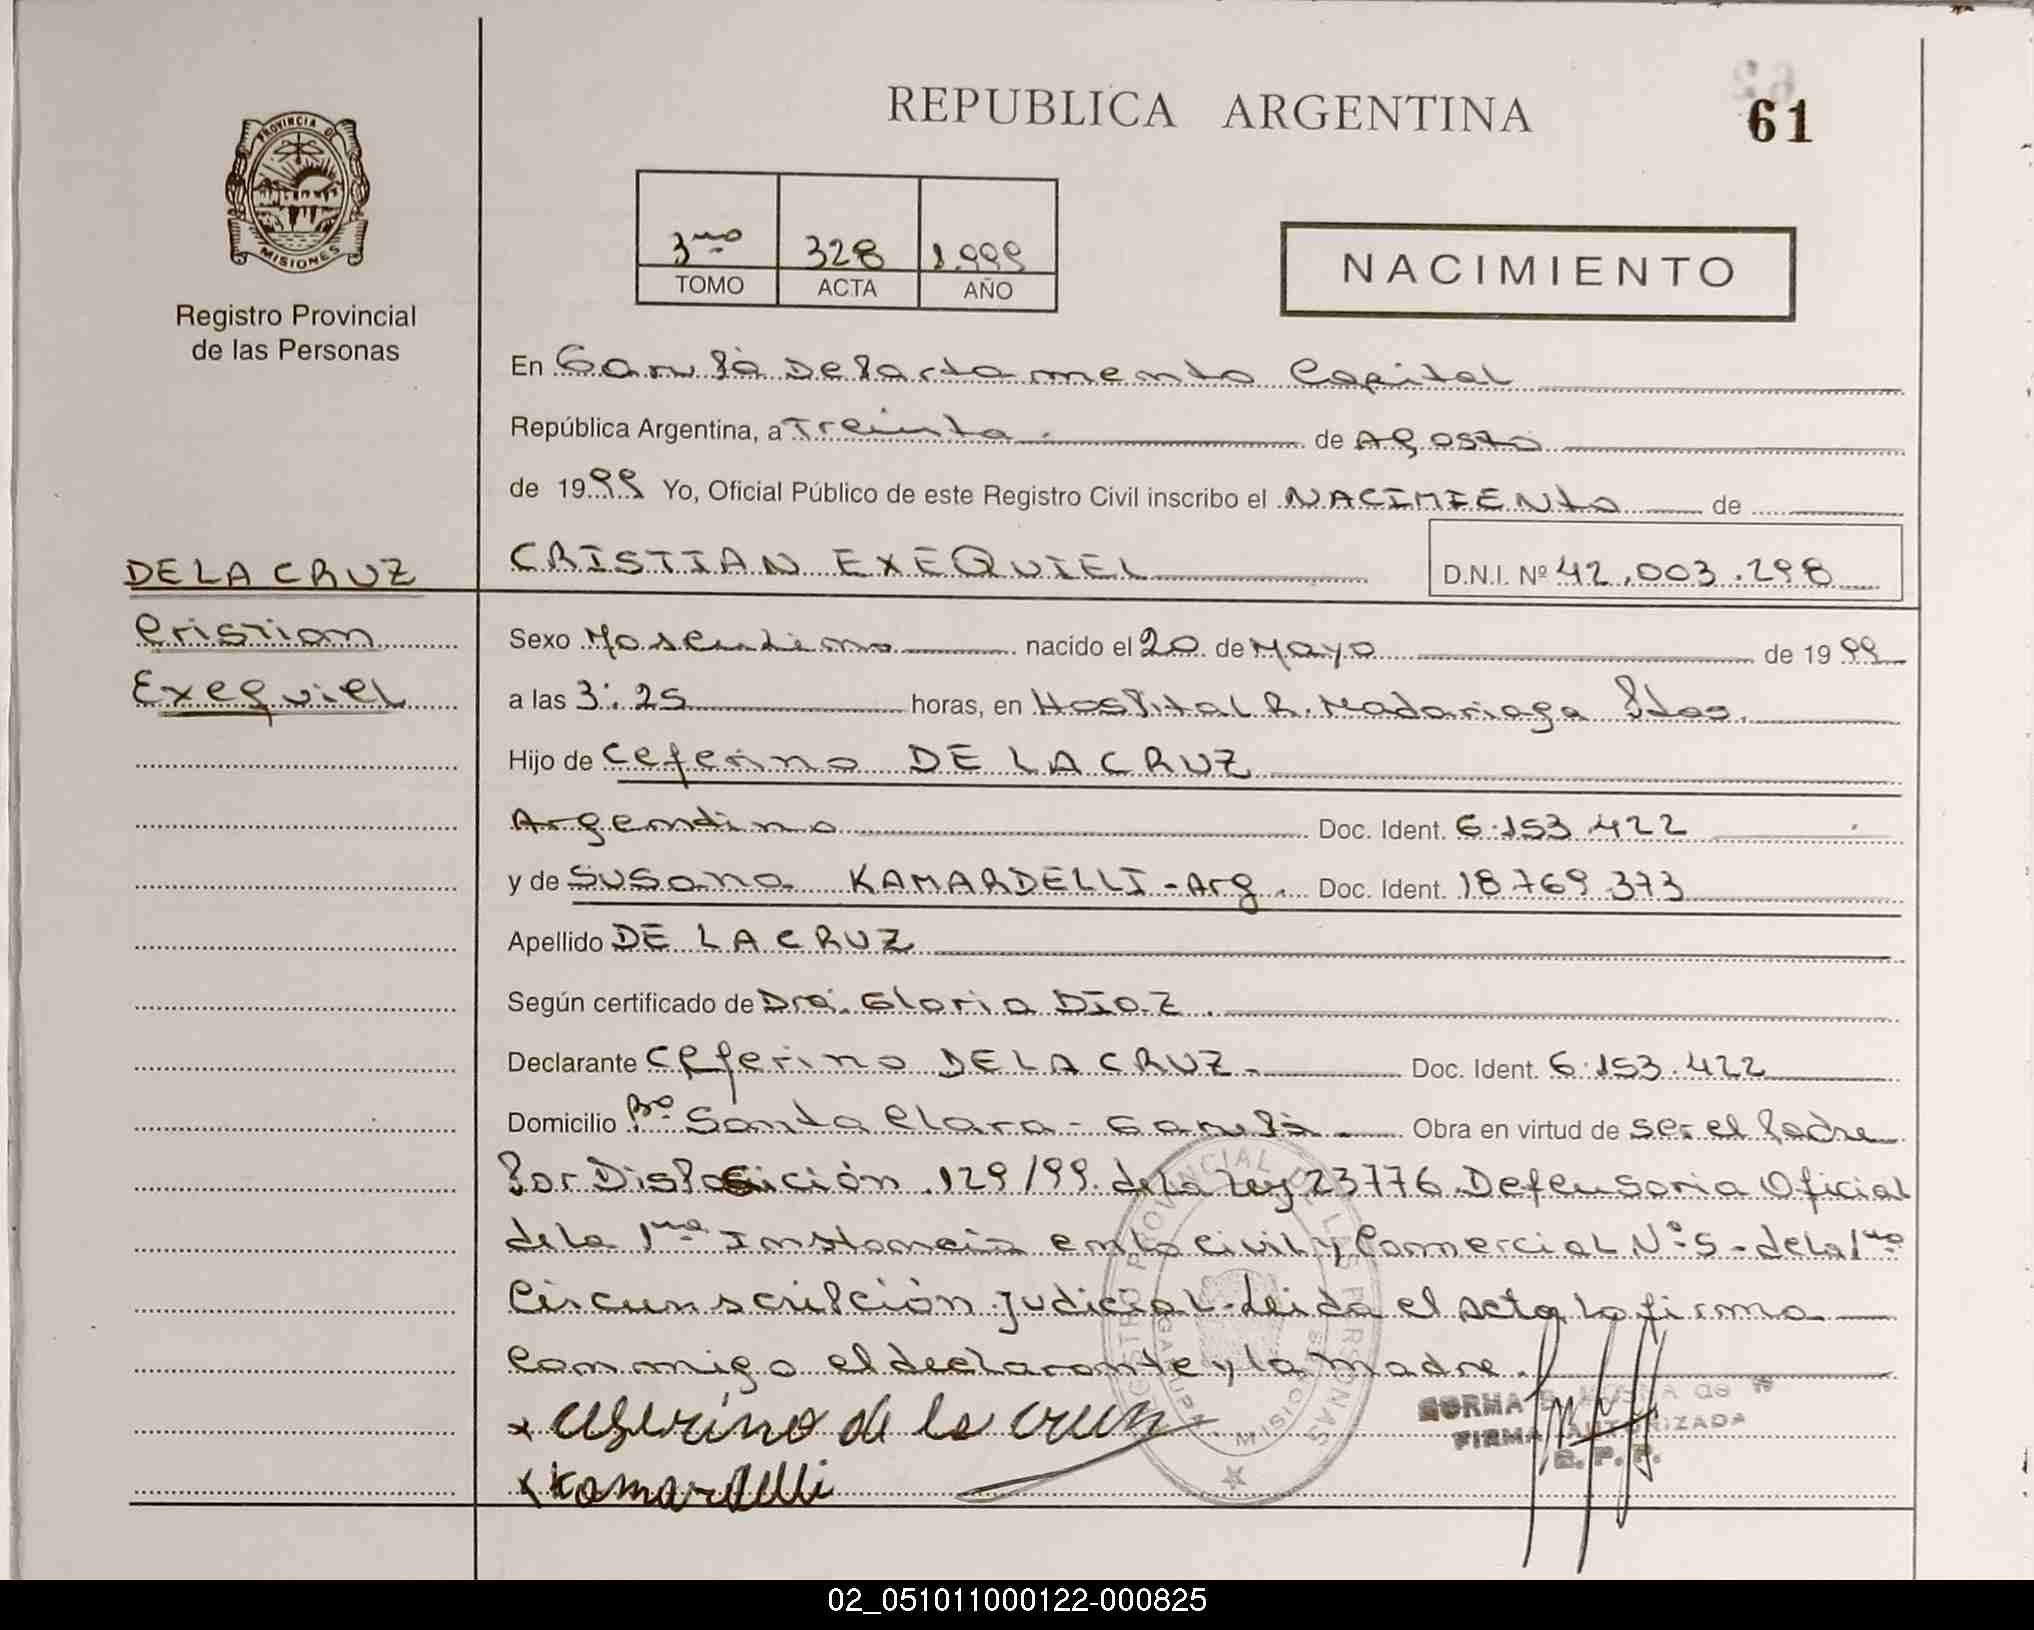 REPUBLICA ARGENTINA
61
PROVINCIA DE
MISIONES
Registro Provincial
de las Personas
3ro 328 1.999
TOMO ACTA AÑO
NACIMIENTO
En Garupá Departamento Capital
República Argentina, a Treinta. de Agosto
de 1999 Yo, Oficial Público de este Registro Civil inscribo el NACIMIENto de
DE LA CRUZ
Cristian
Exequiel
CRISTIAN EXEQUIEL
D.N.I. Nº 42.003.298
Sexo Masculino nacido el 20 de Mayo de 1999
a las 3:25 horas, en Hospital R. Madariaga Pdas.
Hijo de Ceferino DE LA CRUZ
Argentino Doc. Ident. 6.153.422
y de Susana KAMARDELLI - Arg. Doc. Ident. 18.769.373
Apellido DE LA CRUZ
Según certificado de Dra. Gloria DIaZ.
Declarante Ceferino DE LA CRUZ. Doc. Ident. 6.153.422
Domicilio Bº Santa Clara - Garupá. Obra en virtud de ser el Padre
Por Disposición 129/99 de la Ley 23776 Defensoria Oficial
de la 1ra Instancia en lo Civil y Comercial Nº 5 - de la 1ra
Circunscripción judicial. Leida el acta la firma
conmigo el declarante y la madre.
x Ceferino de la cruz
x Kamardelli
REGISTRO PROVINCIAL DE LAS PERSONAS
MISIONES
NORMA B. de
FIRMA AUTORIZADA
R. P. P.
02_051011000122-000825